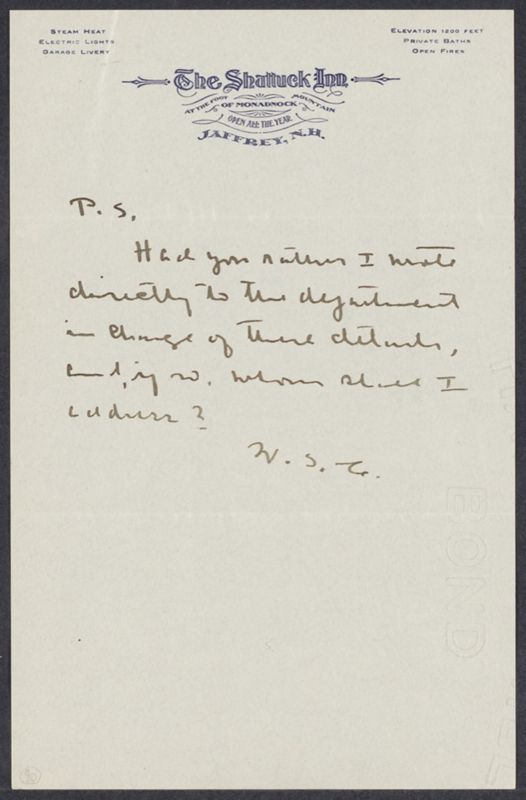 STEAM HEAT
ELECTRIC LIGHTS
GARAGE LIVERY
ELEVATION 1200 FEET
PRIVATE BATHS
OPEN FIRES
The Shattuck Inn
AT THE FOOT OF MONADNOCK MOUNTAIN
OPEN ALL THE YEAR
JAFFREY, N.H.
P. S.
Had you rather I wrote
directly to the department
in charge of these details,
and, if so, whom shall I
address?
W. S. C.
BOND